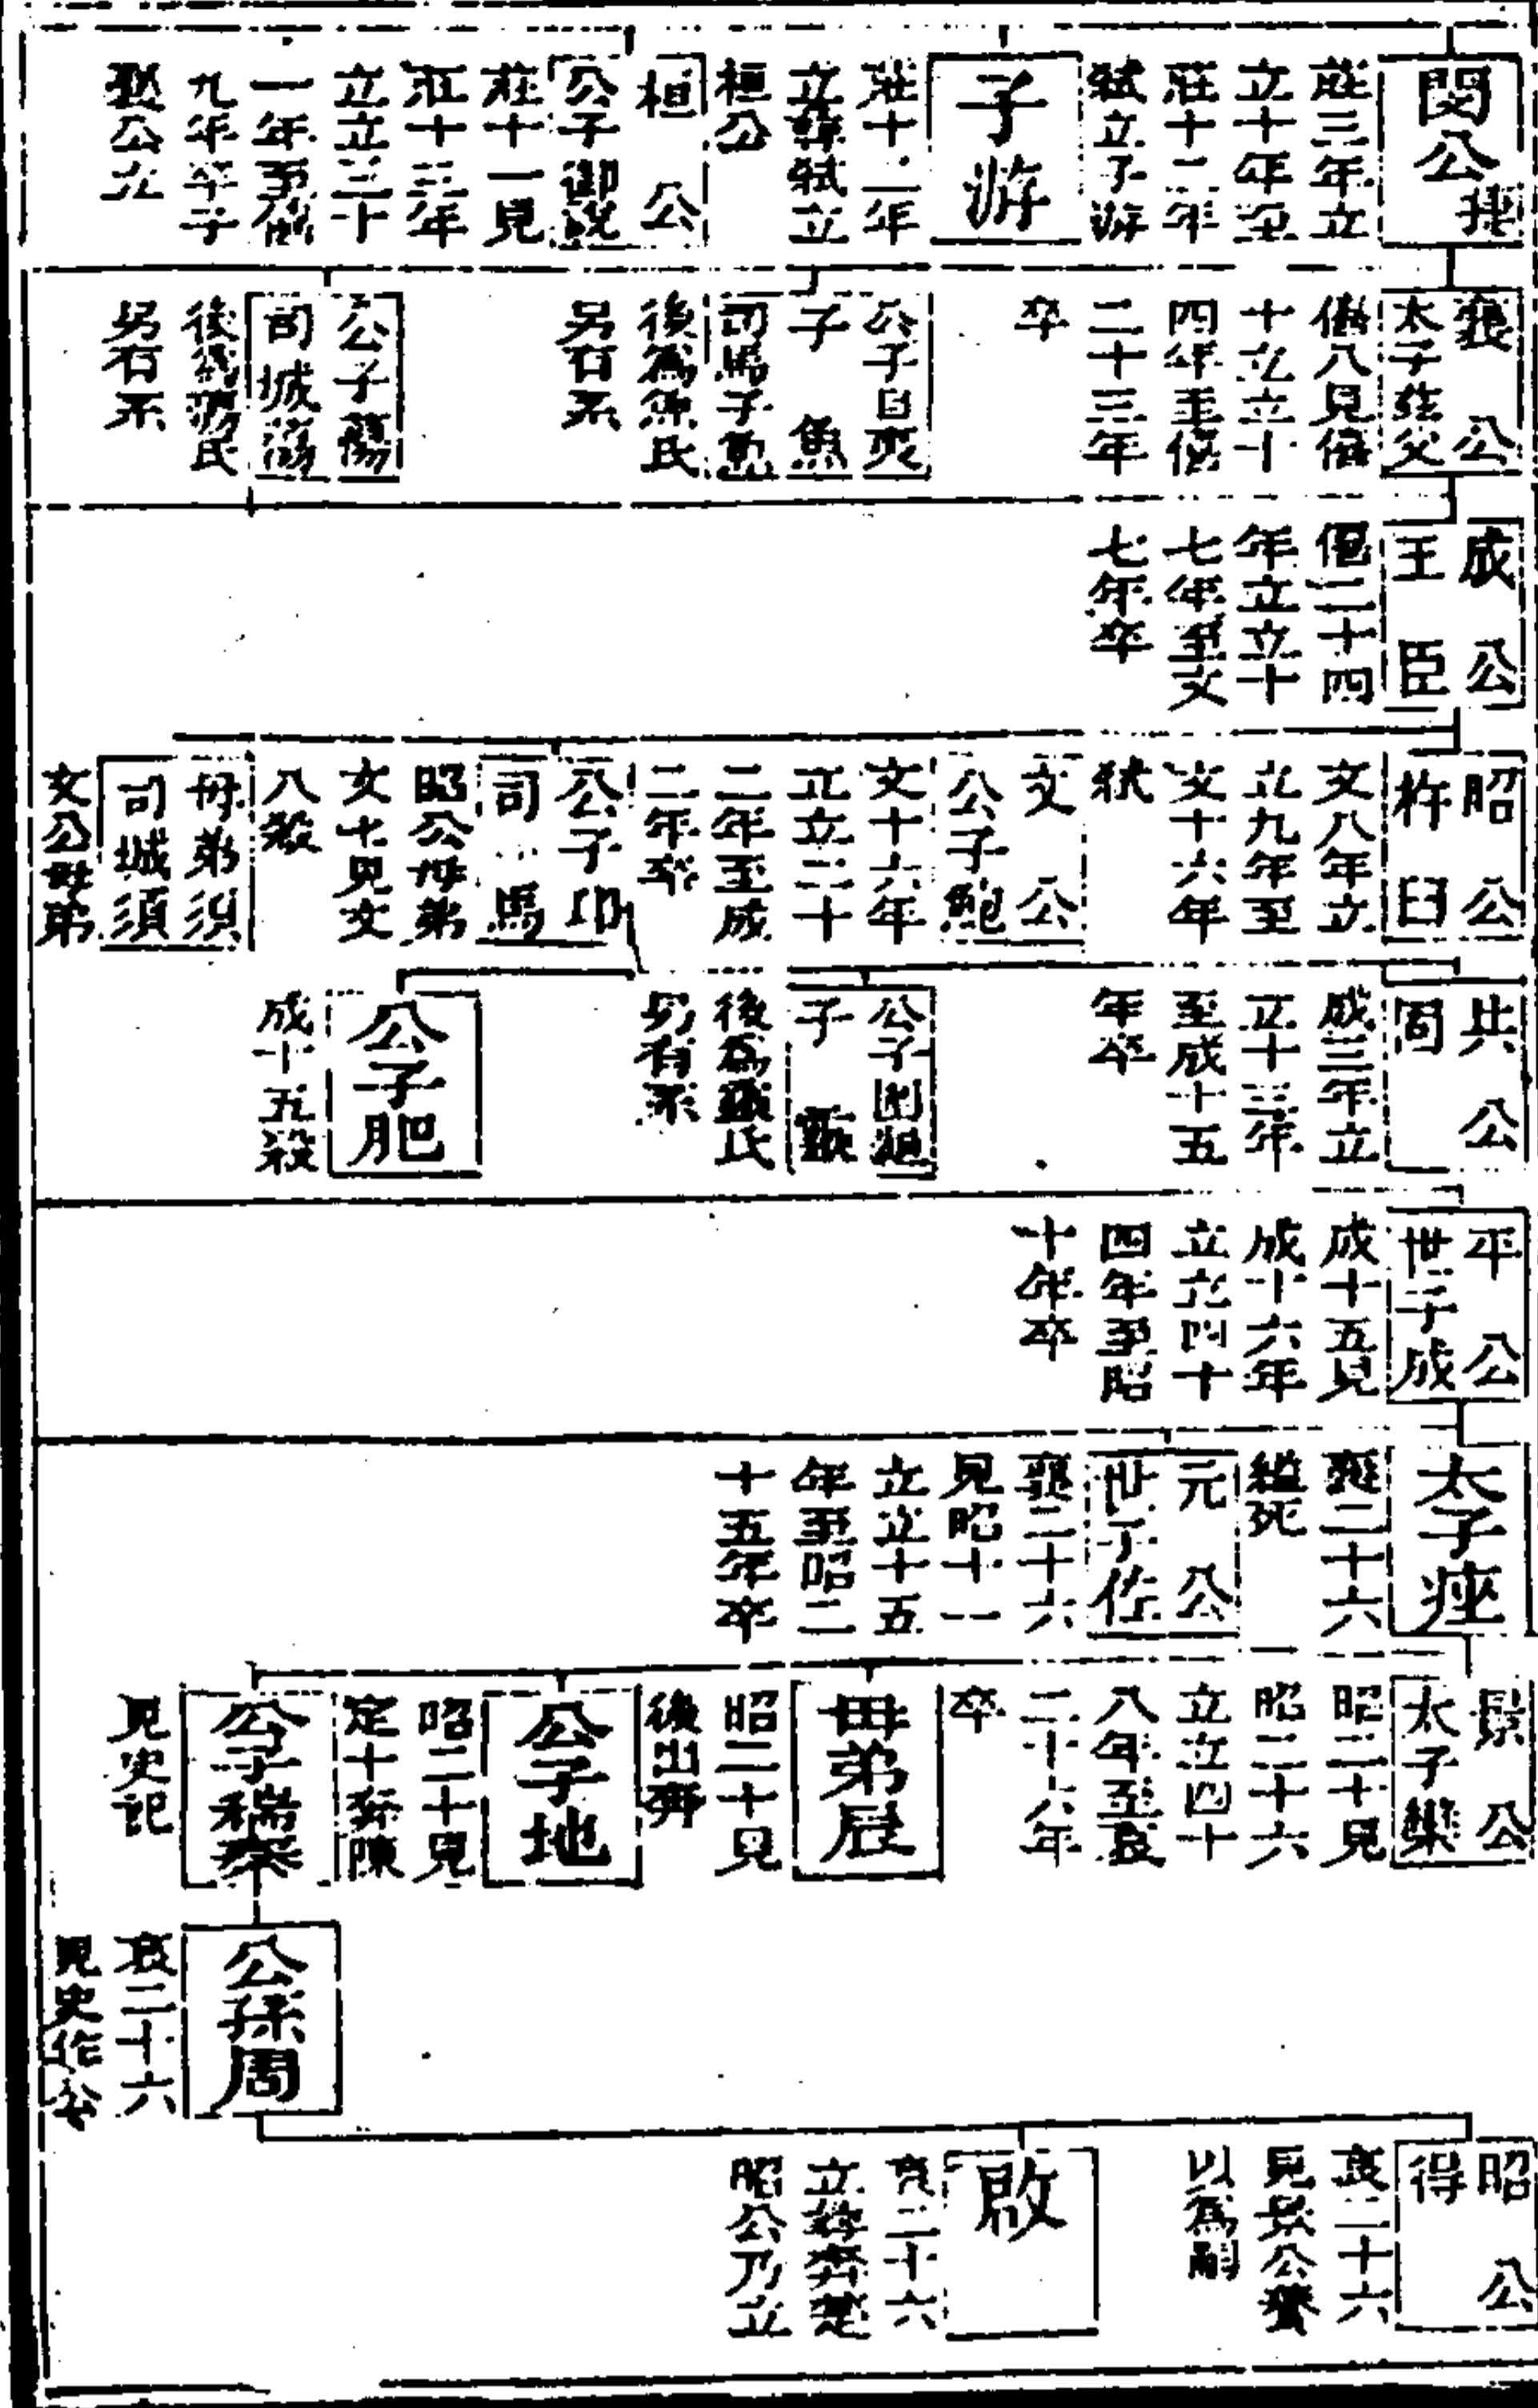 閔公捷
莊三年立
立十年至
莊十二年
弒立子游
子游
莊十二年
立尋弒立
桓公
桓公
公子御說
莊十一見
莊十三年
立立三十
一年至僖
九年卒子
襄公立
襄公
太子茲父
僖八見僖
十立立十
四年至僖
二十三年
卒
公子目夷
子魚
司馬子魚
後爲魚氏
另有系
公子蕩
司城蕩
後爲蕩氏
另有系
成公
王臣
僖二十四
年立立十
七年至文
七年卒
昭公
杵臼
文八年立
立九年至
文十六年
弒
文公
公子鮑
文十六年
立立二十
二年至成
二年卒
公子卬
司馬
昭公母弟
文七見文
八殺
母弟須
司城須
文公母弟
共公
固
成三年立
立十三年
至成十五
年卒
公子圍龜
子靈
後爲靈氏
另有系
公子肥
成十五殺
平公
世子成
成十五見
成十六年
立立四十
四年至昭
十年卒
太子痤
襄二十六
縊死
元公
世子佐
襄二十六
見昭十一
立立十五
年至昭二
十五年卒
景公
太子欒
昭二十見
昭二十六
立立四十
八年至哀
二十六年
卒
母弟辰
昭二十見
後出奔
公子地
昭二十見
定十奔陳
公子褍秦
見史記
公孫周
哀二十六
見史作公
昭公
得
哀二十六
見景公養
以爲嗣
啟
哀二十六
立尋奔楚
昭公乃立